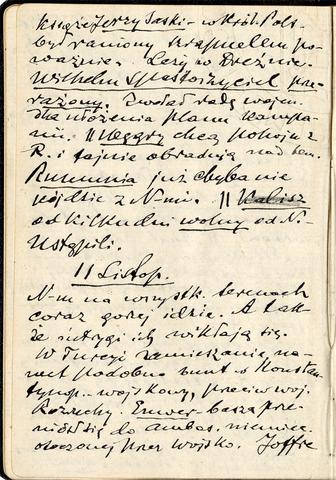 książę Jerzy Saski - w Król. Pols.
był raniony szrapnellem po-
ważnie. Leży w Dreźnie.
Wilhelm spostrzyciel prze-
rażony. Zwołał radę wojen.
dla ułożenia planu kampa-
nii. || Węgry chcą pokoju z
R. i tajnie obradują nad tem.
Rumunia już chyba nie
pójdzie z N-mi. || Kalisz
od kilku dni wolny od N.
Ustąpili.
11 Listop.
N-m na wszystk. terenach
coraz gorzej idzie. A tak-
że intrygi ich wikłają się.
W Turcyi zamieszanie, na-
wet podobno bunt w Konstan-
tynop. - wojskowy, przeciw woj.
Rozruchy. Enwer-basza prze-
niósł się do ambas. niemiec.
otoczonej przez wojsko. Joffre